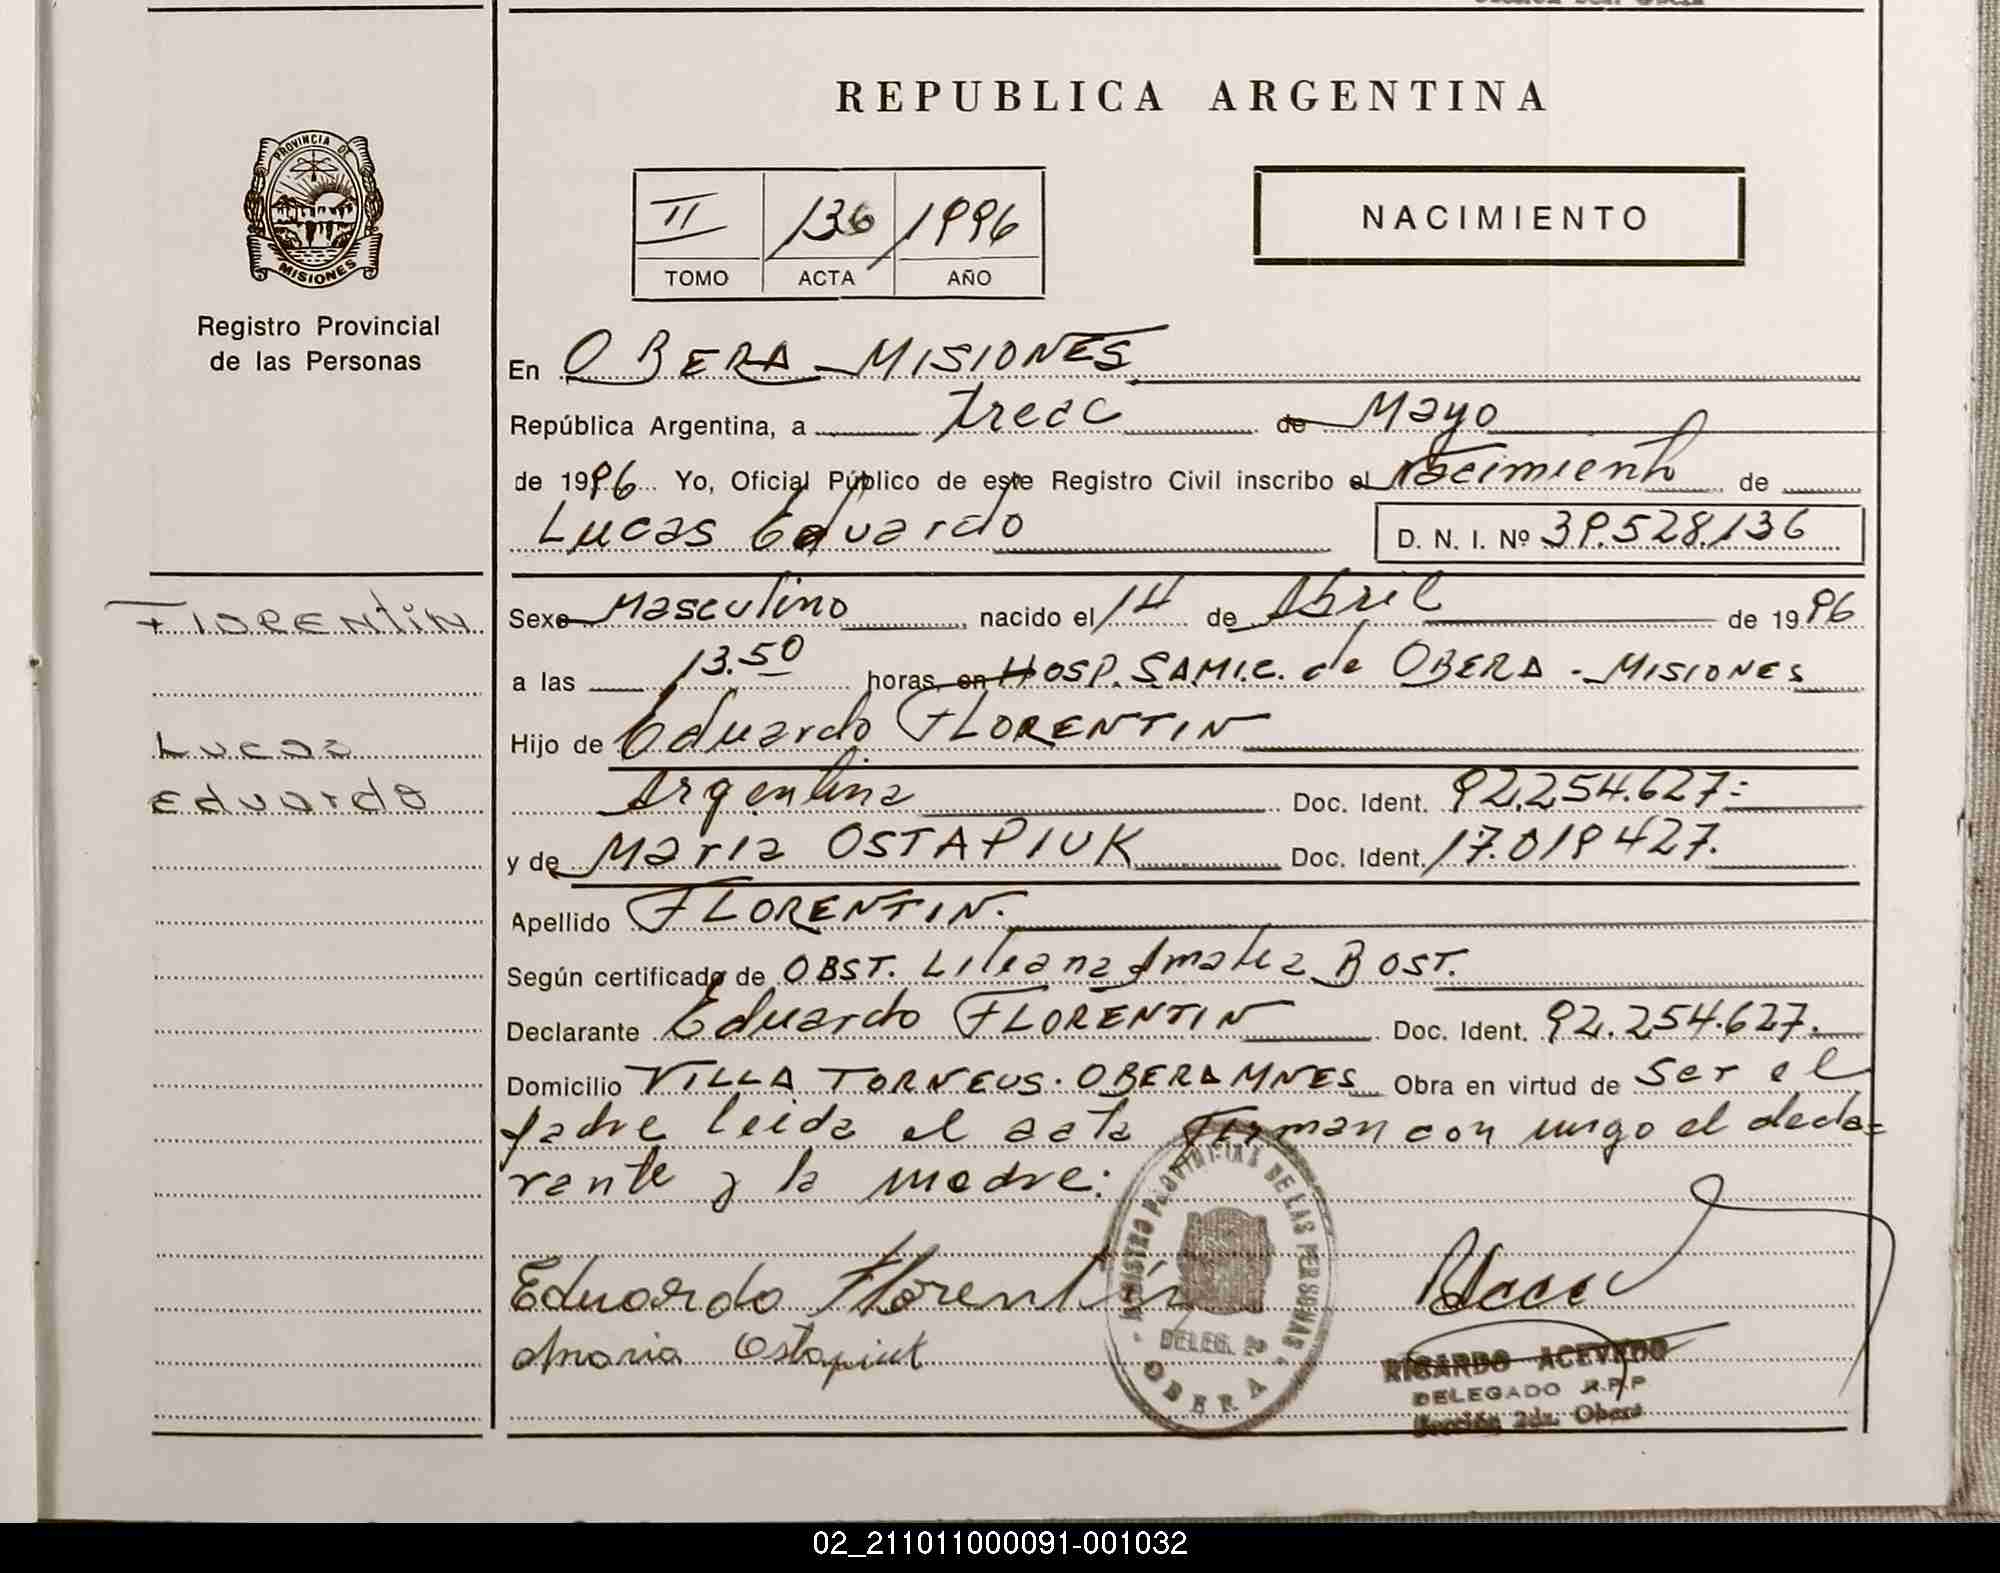 REPUBLICA ARGENTINA
PROVINCIA DE
MISIONES
Registro Provincial
de las Personas
II 136 1996
TOMO ACTA AÑO
NACIMIENTO
En OBERA - MISIONES
República Argentina, a trece de Mayo
de 1996 Yo, Oficial Público de este Registro Civil inscribo el Nacimiento de
Lucas Eduardo D. N. I. Nº 39.528.136
FLORENTIN
Lucas
Eduardo
Sexo Masculino nacido el 14 de Abril de 1996
a las 13.50 horas, en HOSP. SAMIC. de OBERA - MISIONES
Hijo de Eduardo FLORENTIN
Argentina Doc. Ident. 92.254.627=
y de Maria OSTAPIUK Doc. Ident. 17.019427.
Apellido FLORENTIN.
Según certificado de OBST. Liliana Amalia BOST.
Declarante Eduardo FLORENTIN Doc. Ident. 92.254.627.
Domicilio VILLA TORNEUS. OBERA MNES Obra en virtud de Ser el
padre leida el acta Firman con migo el decla=
rante y la madre:
Eduardo Florentín
Maria Ostapiuk
REGISTRO PROVINCIAL DE LAS PERSONAS
DELEG. 2
OBERA
RICARDO ACEVEDO
DELEGADO R.P.P
Sección 2da. Oberá
02_211011000091-001032